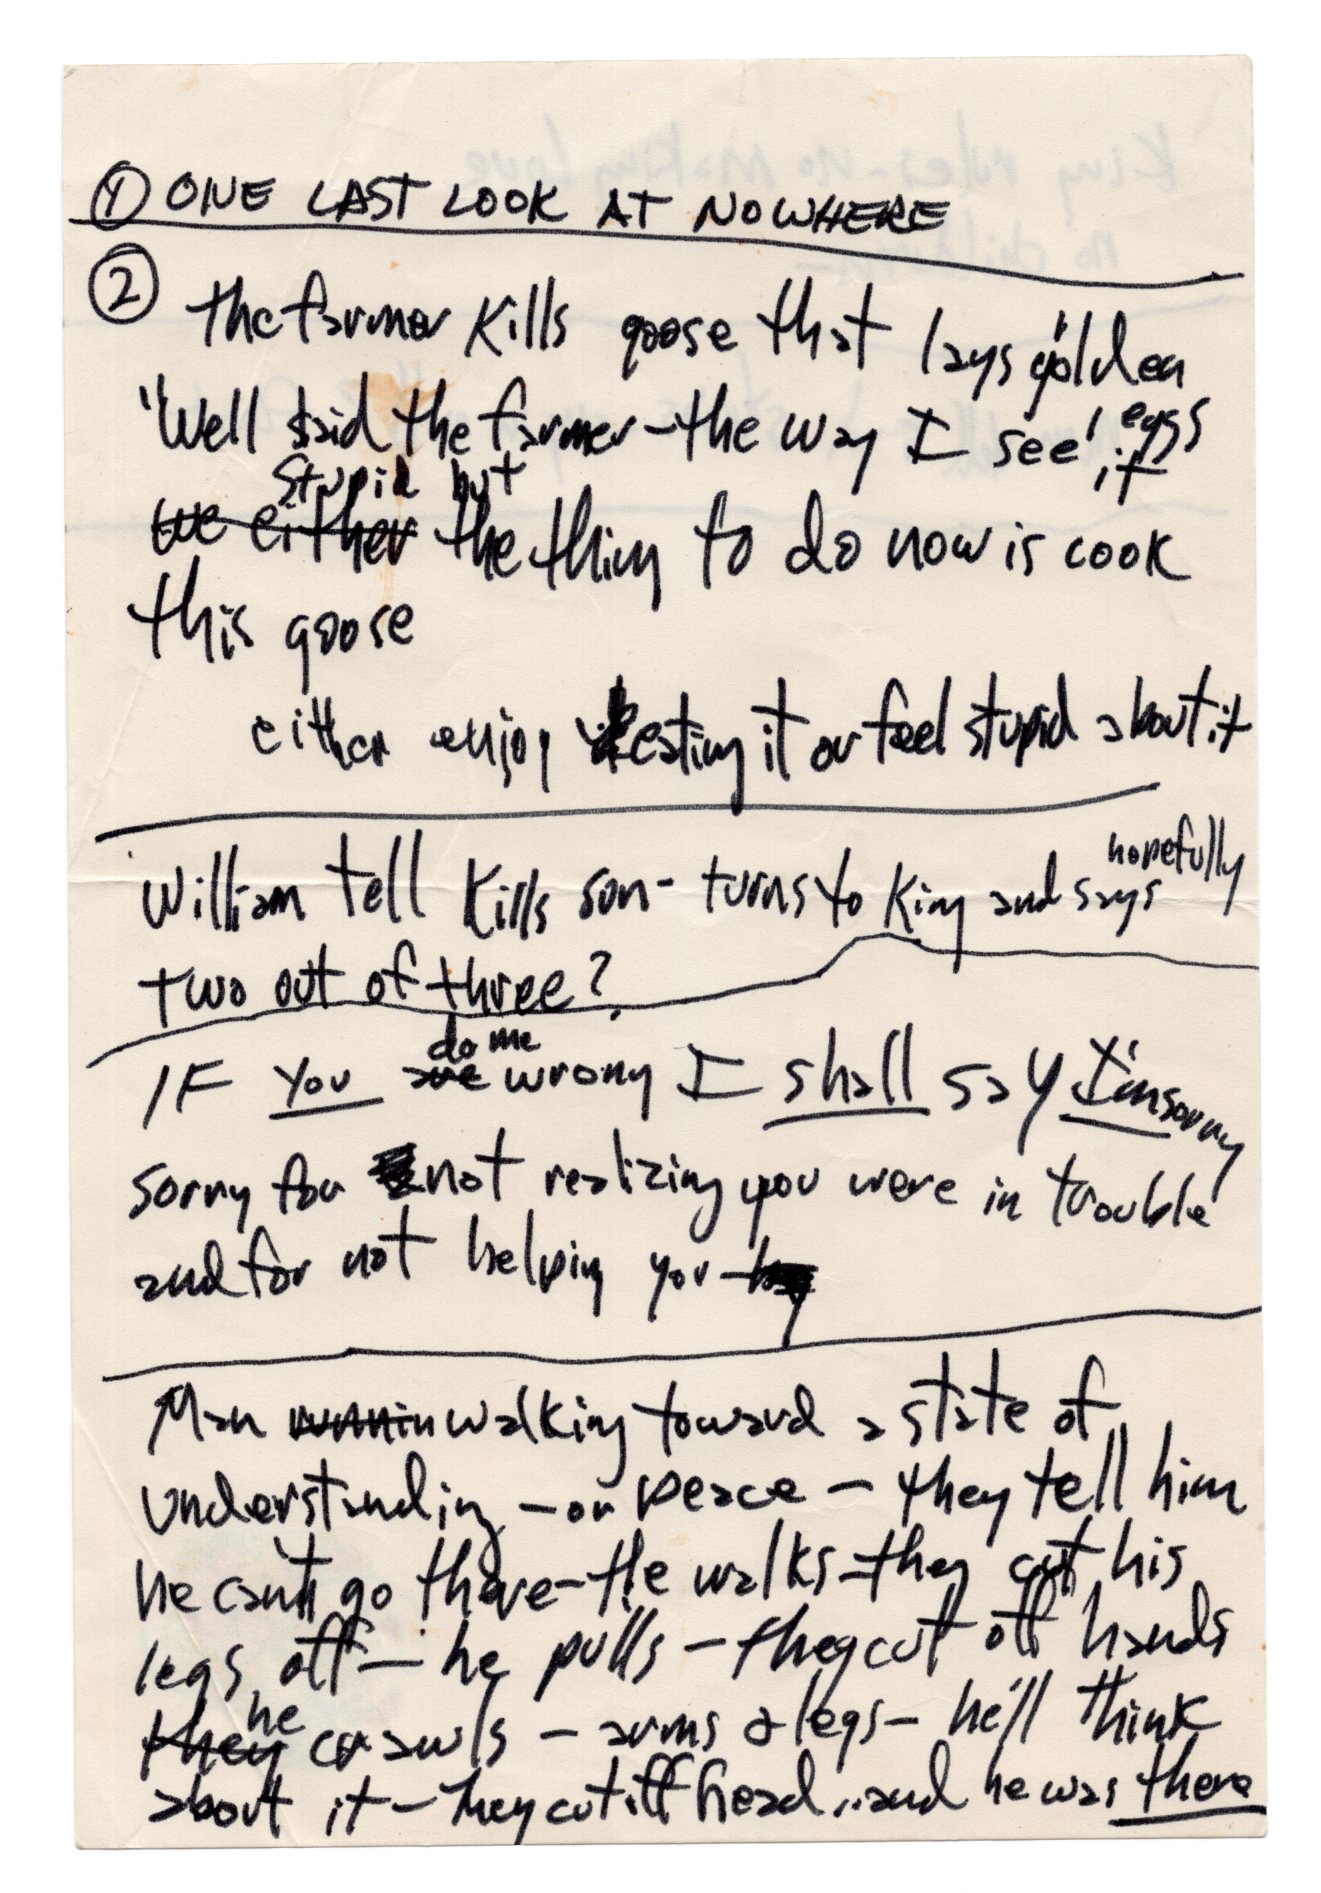 ① ONE LAST LOOK AT NOWHERE
② the farmer kills goose that lays golden
eggs
"Well said the farmer – the way I see it
stupid but
we either the thing to do now is cook
this goose
either enjoy eating it or feel stupid about it
hopefully
William tell kills son - turns to king and says
two out of three?
do me
IF you are wrong I shall say I'm sorry
sorry for not realizing you were in trouble
and for not helping you –
Man runnin walking toward a state of
understanding – or peace – they tell him
he can't go there – He walks – they cut his
legs off – he pulls – they cut off hands
he
they crawls – arms & legs – he'll think
about it – they cut off head .. and he was there